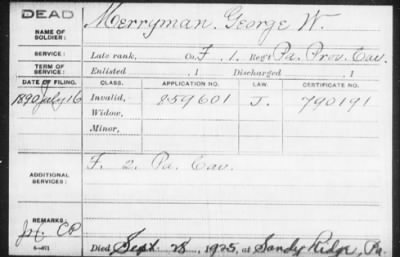 DEAD
NAME OF SOLDIER: Merryman, George W.
SERVICE: Late rank, Co. F, 1. Reg't Pa. Prov. Cav.
TERM OF SERVICE: Enlisted , 1 Discharged , 1
DATE OF FILING. CLASS. APPLICATION NO. LAW. CERTIFICATE NO.
1890 July 16 Invalid, 859601 J. 790191
Widow,
Minor,
ADDITIONAL SERVICES: F. 2. Pa. Cav.
REMARKS:
Died Sept. 28, 1925, at Sandy Ridge, Pa.